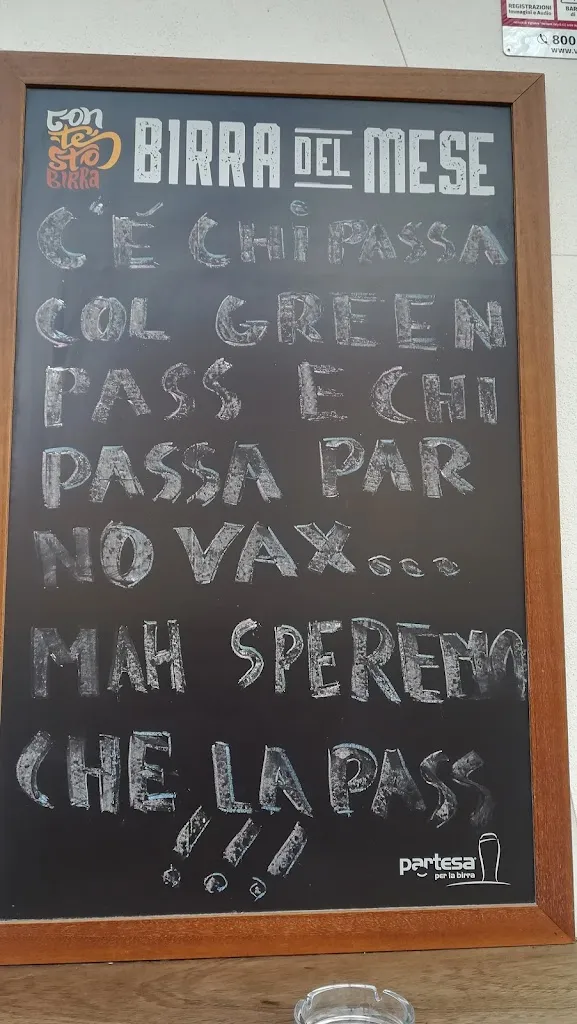 REGISTRAZIONI
Immagini e Audio
BAR
di
800
www.v
con
te
sto
BIRRa
BIRRA DEL MESE
C'É CHI PASSA
COL GREEN
PASS E CHI
PASSA PAR
NO VAX...
MAH SPEREMO
CHE LA PASS
!!!
partesa
per la birra